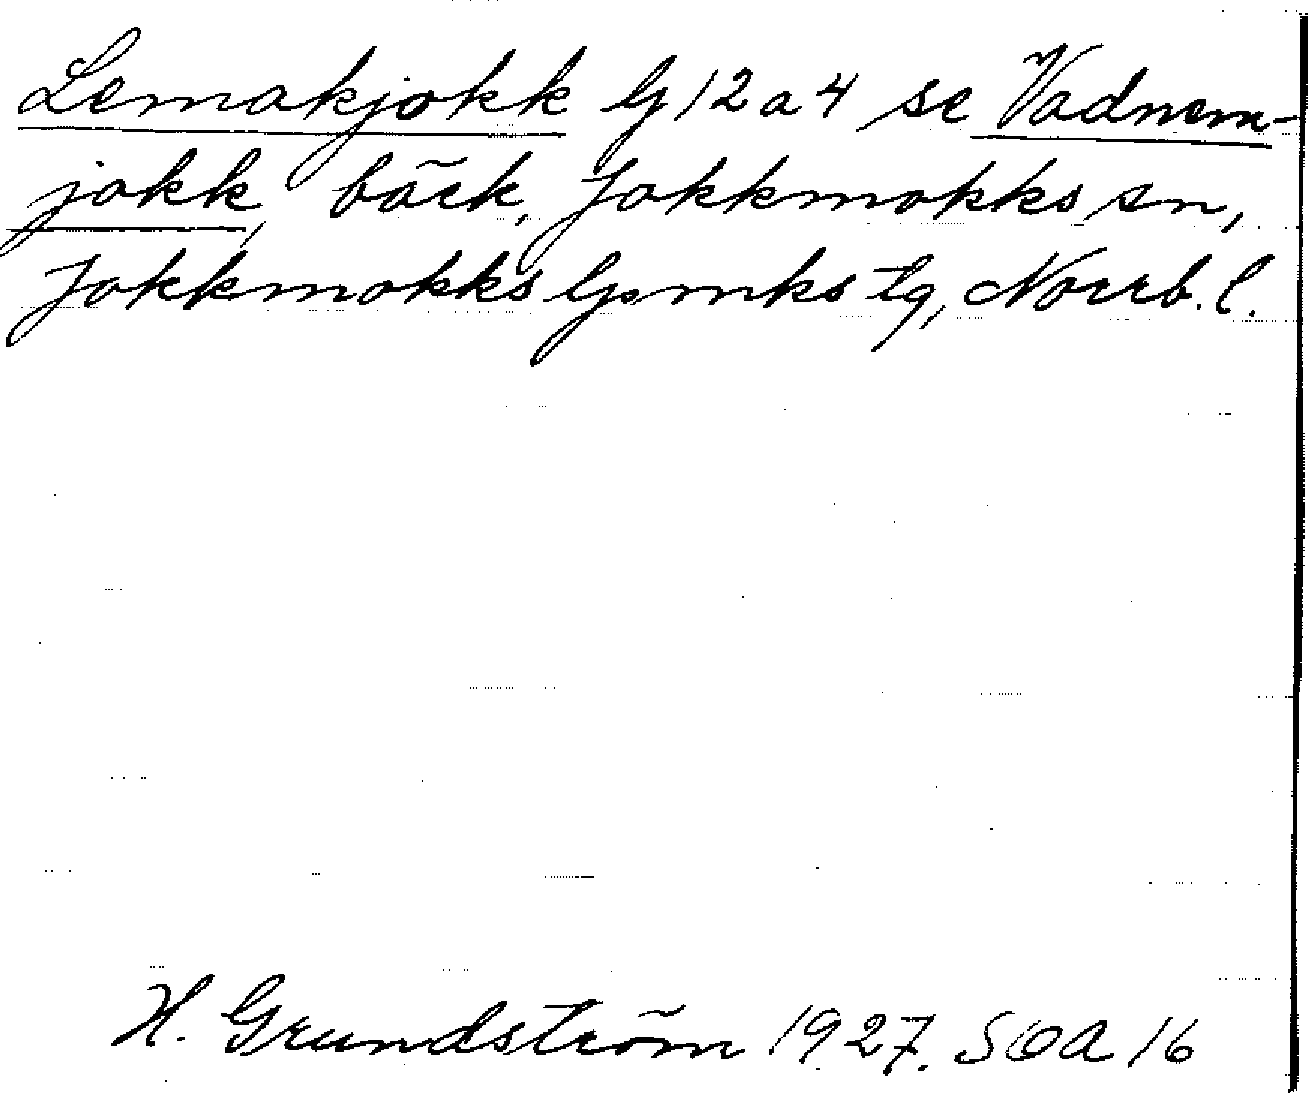 Lemakjokk G12a4 se Vadnem-
jokk, bäck, Jokkmokks sn,
Jokkmokks lpmks tg, Norrb. l.
H. Grundström 1927. SOA 16